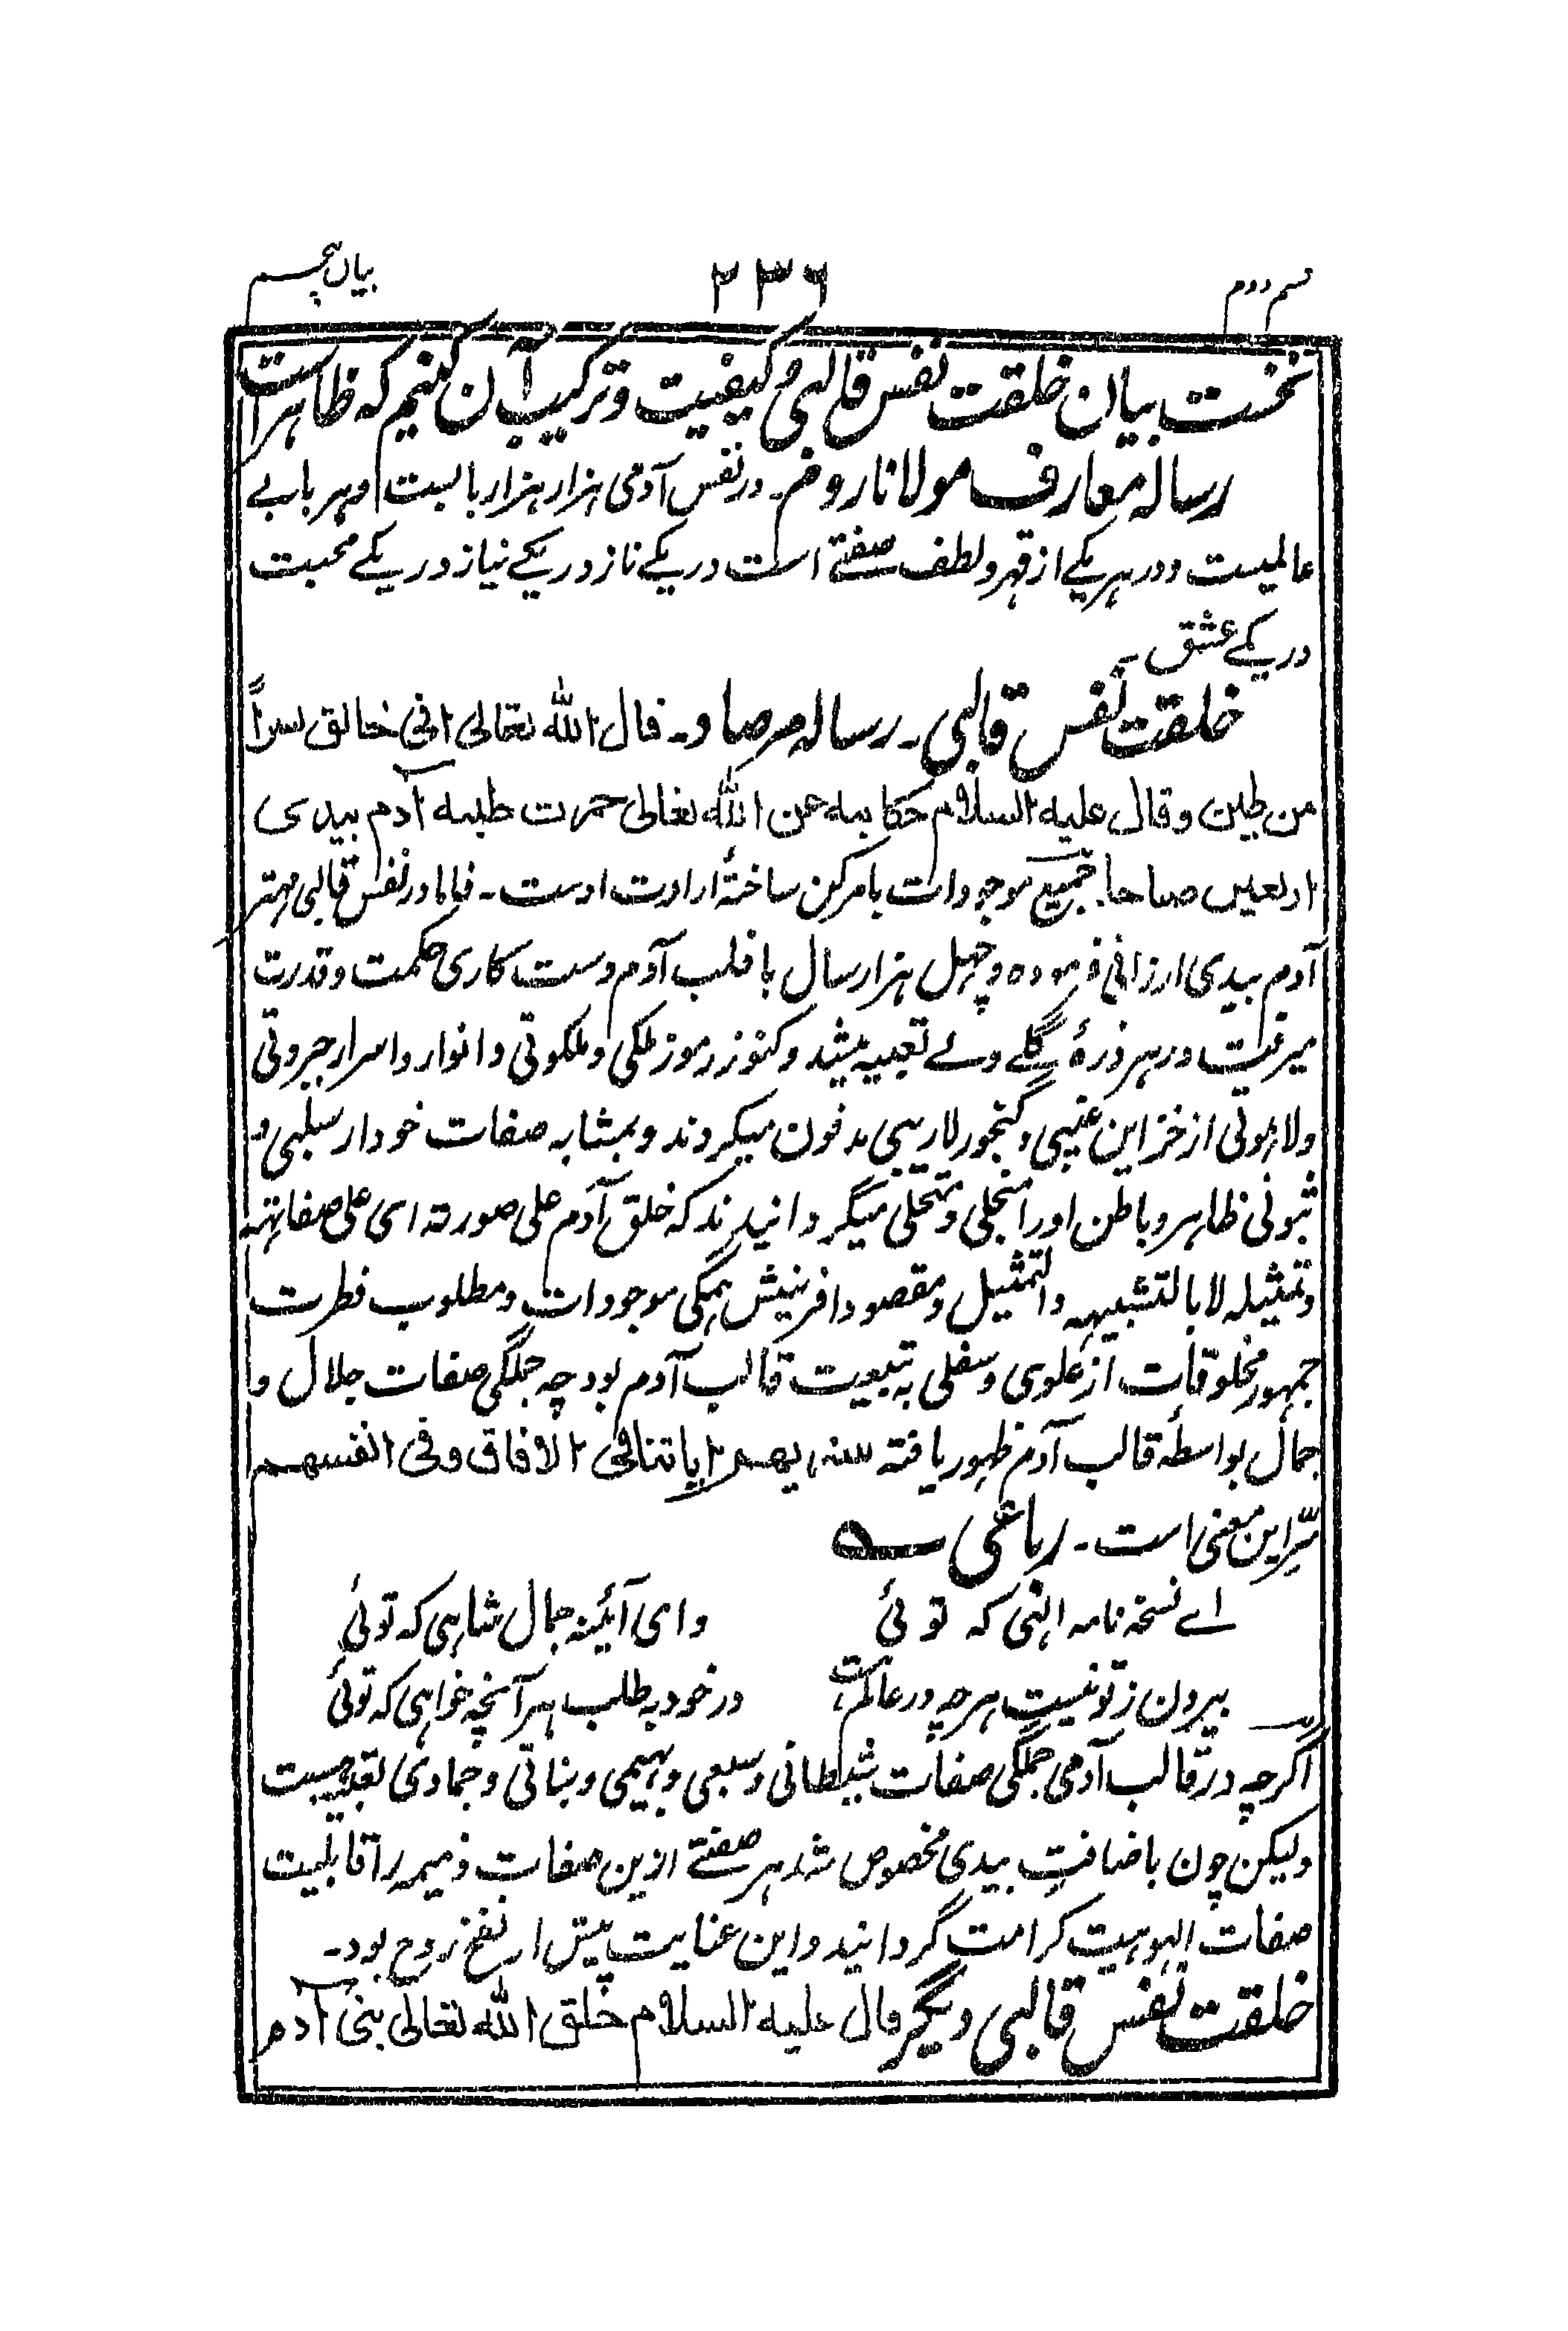 قسم دوم ۲۳۶ بیان پنجم
نخست بیان خلقت نفس قالبی و کیفیت و ترکیب آن کنیم که ظاهر است
رسالہ معارف مولانا روم۔ در نفس آدمی ہزار ہزار بابست و ہر بابے
عالمیست و در ہر یکے از قہر و لطف صفتے است در یکے ناز در یکے نیاز در یکے محبت
در یکے عشق۔
خلقت نفس قالبی۔ رسالہ مرصاد۔ قال الله تعالى انی خالق بشراً
من طین وقال علیه السلام حکایة عن الله تعالى خمرت طینة آدم بیدی
اربعین صباحا۔ جمیع موجودات بامر کن ساختۂ ارادت اوست۔ فاما در نفس قالبی مہتر
آدم بیدی ارزانی فرمودہ و چہل ہزار سال با قلب آدم دست کاری حکمت و قدرت
میرفت در ہر ذرۂ گلے ولے تعبیہ میشد و کنوز رموز ملکی و ملکوتی و انوار و اسرار جبروتی
و لاہوتی از خزاین غیبی و گنجور لاریبی مدفون میکردند و بمشابہ صفات خود از سلبی و
ثبوتی ظاہر و باطن او را متجلی و متحلی میگردانیدند کہ خلق آدم علی صورته ای علی صفاتہ
وتمثیله لا بالتشبیہ والتمثیل و مقصود افرینش ہمگی موجودات و مطلوب فطرت
جمہور مخلوقات از علوی و سفلی بہ تبعیت قالب آدم بود چہ جملگی صفات جلال و
جمال بواسطۂ قالب آدم ظہور یافتہ سنریهم ایاتنا فی الافاق وفی انفسهم
سّر این معنی است۔ رباعی
اے نسخہ نامہ الہٰی کہ توئی وای آئینہ جمال شاہی کہ توئی
بیرون ز تو نیست ہر چہ در عالم است در خود بہ طلب ہر آنچہ خواہی کہ توئی
اگرچہ در قالب آدمی جملگی صفات شیطانی و سبعی و بہیمی و نباتی و جمادی تعبیہ است
ولیکن چون باضافت بیدی مخصوص شد ہر صفتے ازین صفات ذمیمہ را قابلیت
صفات الہوہیت کرامت گردانید و این عنایت پیش از نفخ روح بود۔
خلقت نفس قالبی دیگر قال علیه السلام خلق الله تعالى بنی آدم